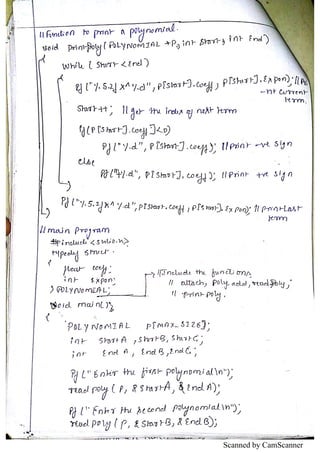 //function to print a polynomial.
void printpoly (POLYNOMIAL *P, int start, int End)
{
while ( start < End )
{
Pf ("%.5.2f x^ %d", P[start].coeff, P[start].Expon); //
-nt current
term.
start++; // get the index of next term
if(P[start].coeff <0)
Pf ("%.d", P[start].coeff); //print -ve sign
else
Pf ("+%.d", P[start].coeff); //print +ve sign
}
Pf ("%.5.2f x^ %d", P[start].coeff, P[start].Expon); //print last
term
}
//main program
#include <stdio.h>
typedef struct
{
float coeff;
int Expon;
} POLYNOMIAL;
//Include the functions
// attach, Poly add, readpoly,
// print poly.
void main()
{
POLYNOMIAL P[MAX_SIZE];
int startA, startB, startC;
int EndA, EndB, EndC;
Pf ("Enter the first polynomial\n");
read poly (P, &startA, &EndA);
Pf ("Enter the second polynomial\n");
read poly (P, &startB, &EndB);
Scanned by CamScanner